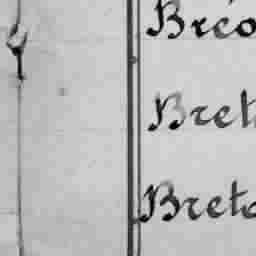 Bréo
Bret
Breto